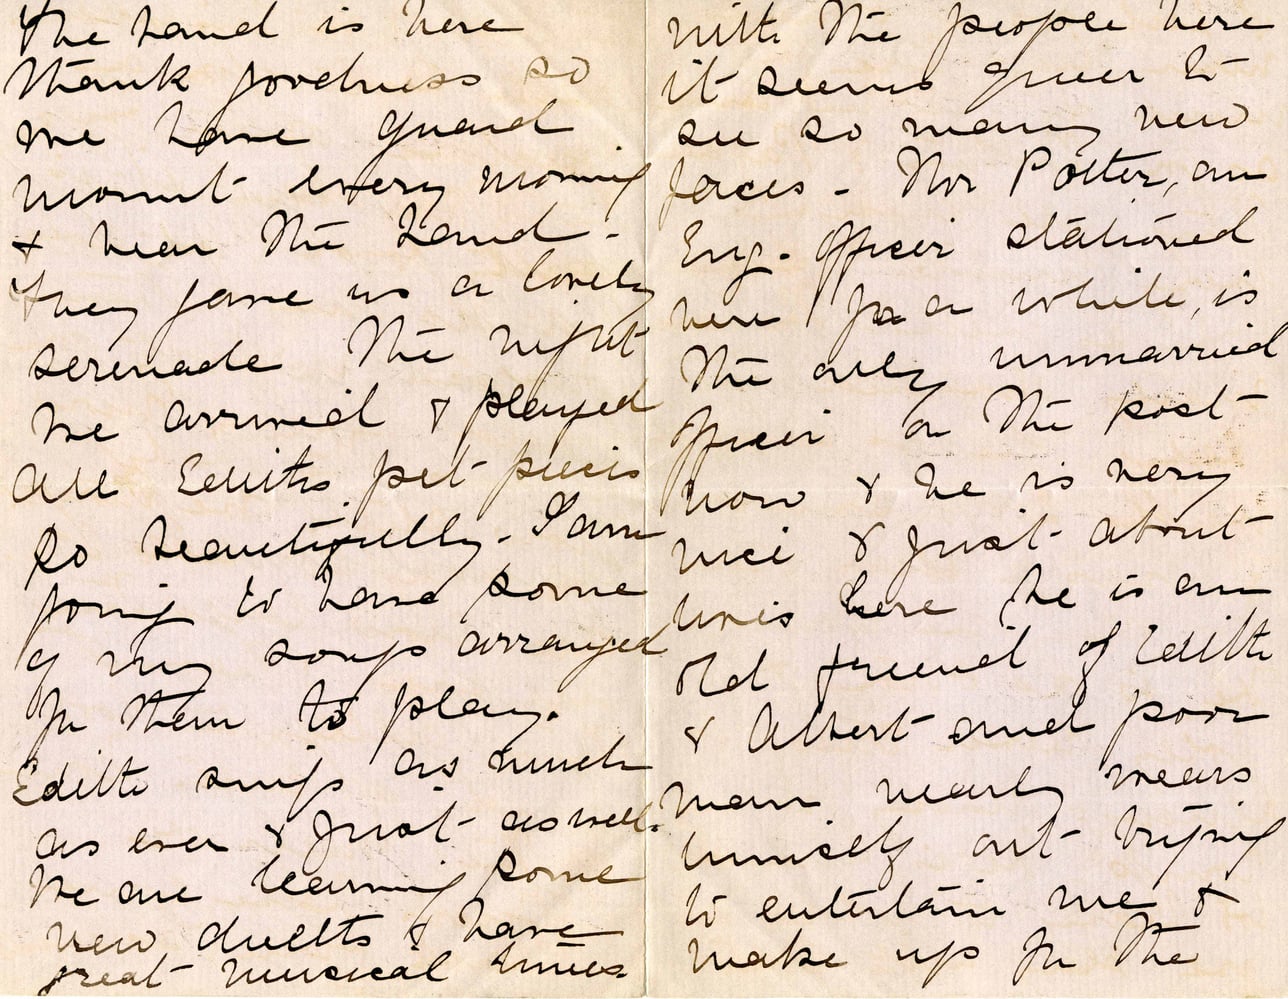 The band is here
thank goodness so
we have guard
mount every morning
& hear the band -
They gave us a lovely
serenade the night
we arrived & played
all Ediths pet pieces
so beautifully - I am
going to have some
of my songs arranged
for them to play.
Edith sings as much
as ever & just as well.
We are learning some
new duetts & have
great musical times.
with the people here
it seems queer to
see so many new
faces - Mr Potter, an
Eng. officer stationed
here for a while, is
the only unmarried
officer on the post
now & he is very
nice & just about
lives here he is an
old friend of Edith
& Albert and poor
man nearly wears
himself out trying
to entertain me &
make up for the